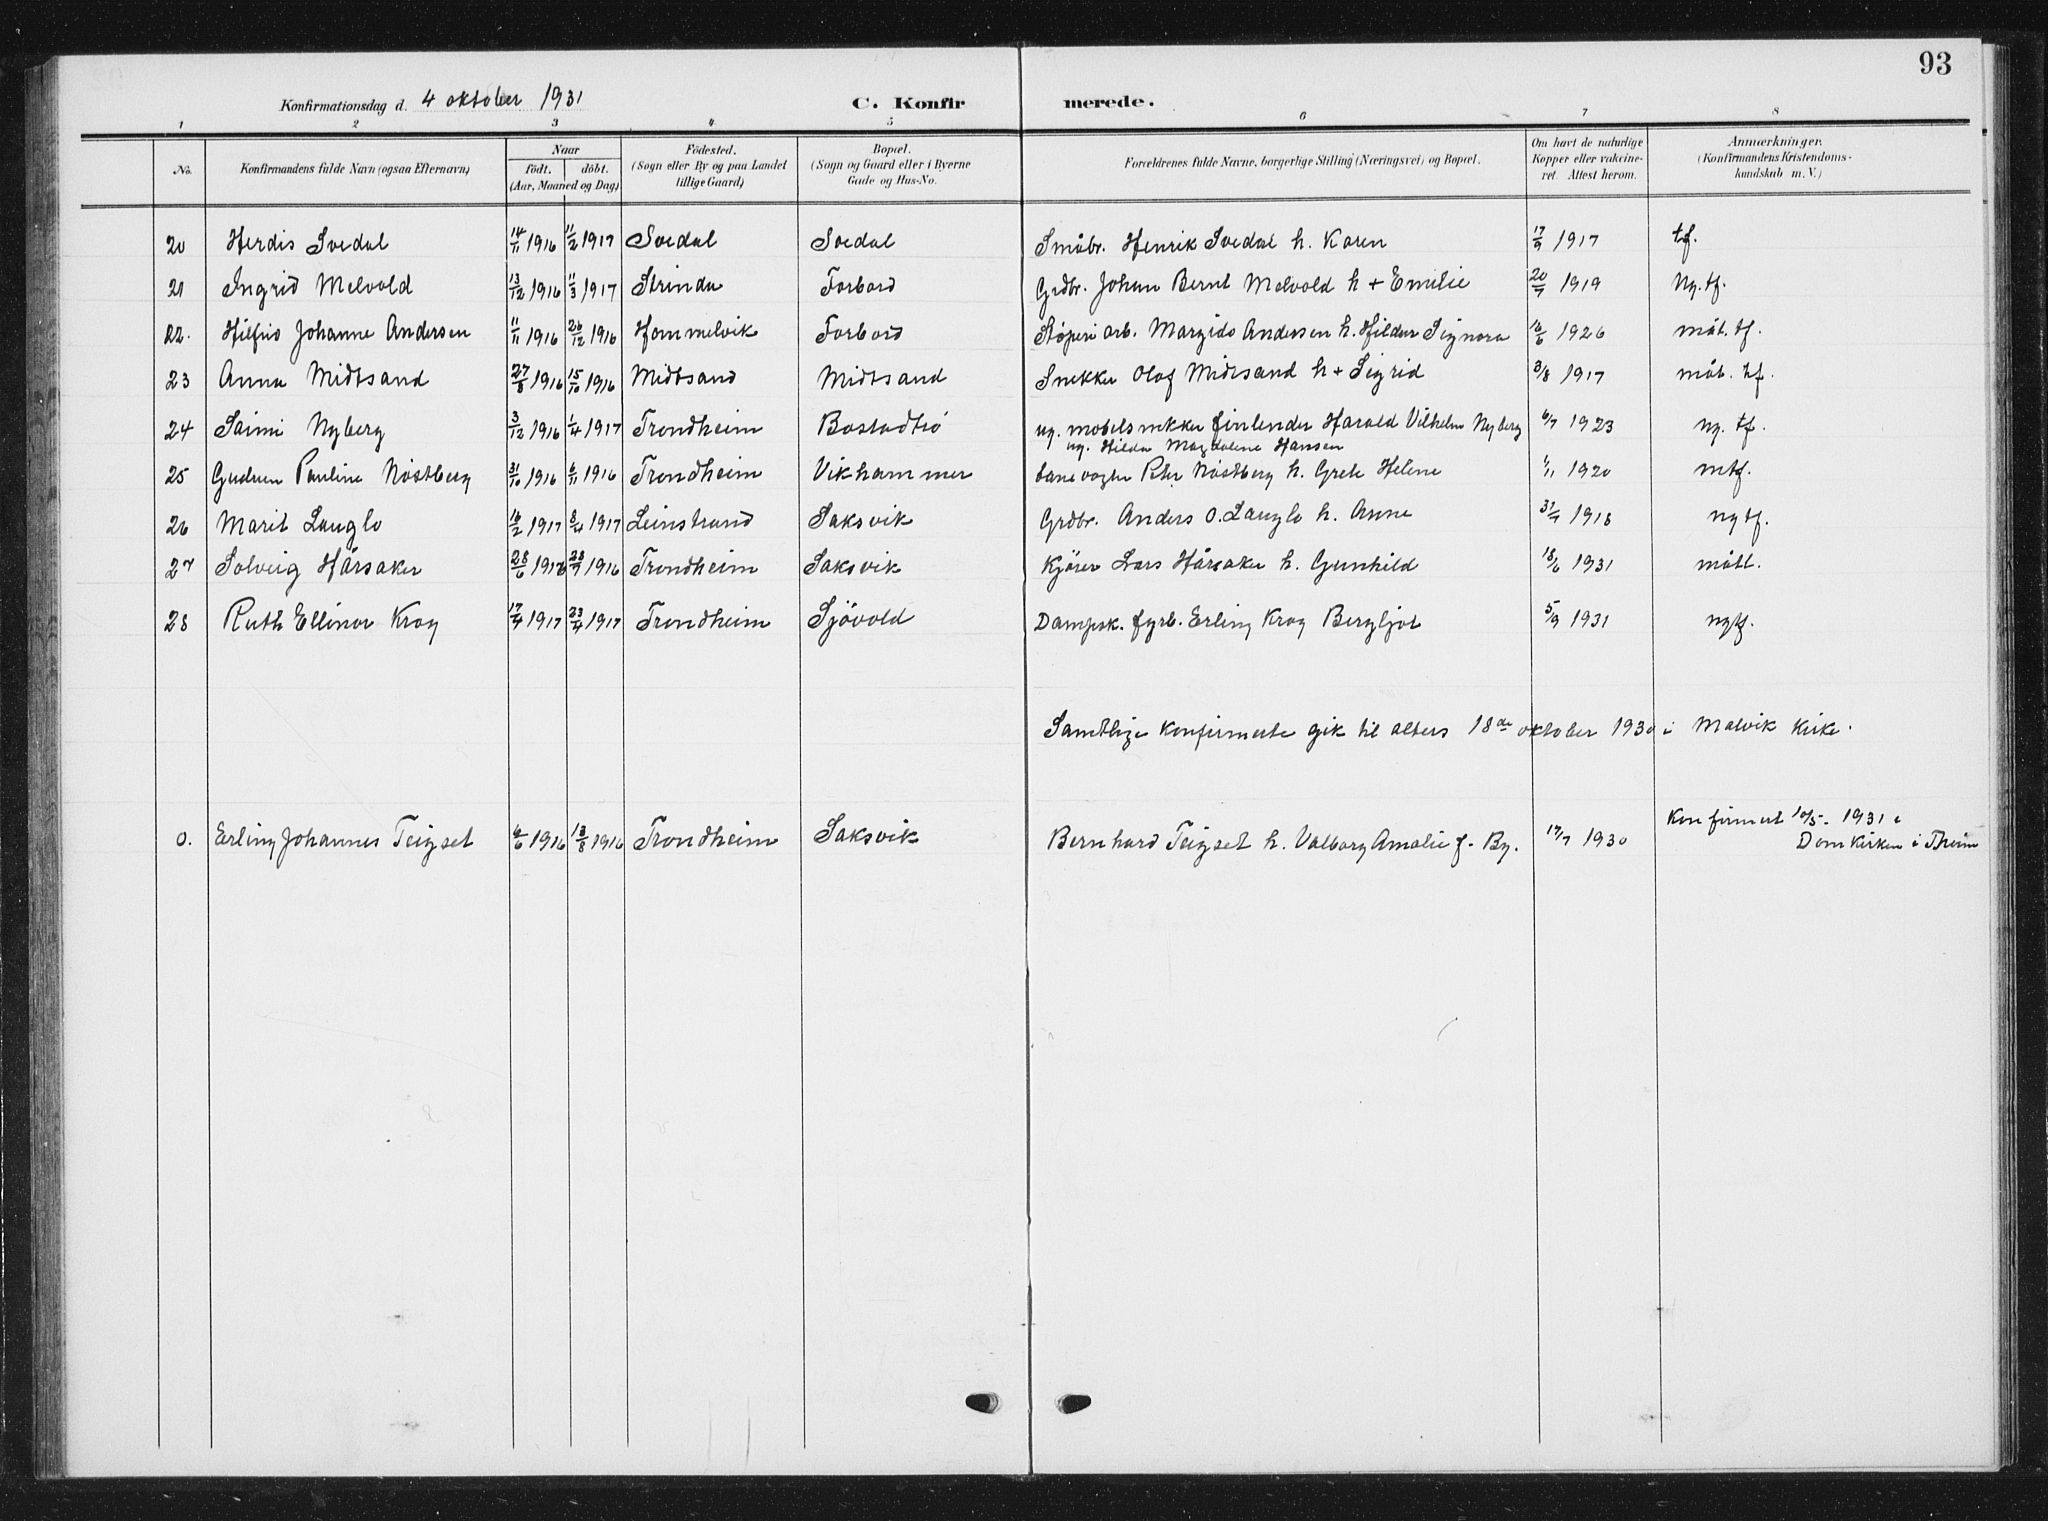 93
Konfirmationsdag d. 4 oktober 1931 C. Konfir merede.
1 2 3 4 5 6 7 8
No. Konfirmandens fulde Navn (ogsaa Efternavn) Naar födt. döbt. (Aar, Maaned og Dag) Födested. (Sogn eller By og paa Landet tillige Gaard) Bopæl. (Sogn og Gaard eller i Byerne Gade og Hus-No. Forældrenes fulde Navne, borgerlige Stilling (Næringsvei) og Bopæl. Om havt de naturlige Kopper eller vakcineret. Attest herom. Anmærkninger. (Konfirmandens Kristendomskundskab m. V.)
20 Herdis Svedal 14/11 1916 11/2 1917 Svedal Svedal Småbr. Henrik Svedal h. Karen 17/9 1917 tf.
21 Ingrid Melvold 13/12 1916 11/3 1917 Strinda Forbord Grdbr. Johan Bernt Melvold h + Emilie 20/7 1919 Ng. tf.
22. Hilfrid Johanne Andersen 11/11 1916 26/12 1916 Hommelvik Forbord Støperi arb. Margido Andersen h. Hildur Signora 16/6 1926 måt. tf.
23 Anna Midtsand 27/8 1916 15/10 1916 Midtsand Midtsand Snekker Olaf Midtsand h + Sigrid 3/8 1917 måt. tf.
24 Saimi Nyberg 3/12 1916 1/4 1917 Trondheim Bostadtrø ug. mobelsnekker finlender Harald Vilhelm Nyberg 6/7 1923 ng. tf.
ug. Hilda Magdalene Hansen
25 Gudrun Pauline Nøstberg 31/10 1916 6/11 1916 Trondheim Vikhammer banevogter Peter Nøstberg h. Grete Helene 1/11 1920 mtf.
26 Marit Langlo 16/2 1917 8/4 1917 Leinstrand Saksvik Grdbr. Anders O. Langlo h. Anne 31/7 1918 ngtf.
27 Solveig Hårsaker 28/6 1916 23/7 1916 Trondheim Saksvik Kjører Lars Hårsaker h. Gunhild 18/6 1931 måtl.
28 Ruth Ellinor Krog 17/4 1917 23/4 1917 Trondheim Sjøvold Dampsk. fyrb. Erling Krog Bergljot 5/9 1931 ngtf.
Samtlige Konfirmerte gik til alters 18de oktober 1930 i Malvik Kirke.
0. Erling Johannes Teigset 6/6 1916 13/8 1916 Trondheim Saksvik Bernhard Teigset h. Valborg Amalie f. By. 17/7 1930 Konfirmert 10/5. 1931 i
Domkirken i Thrim